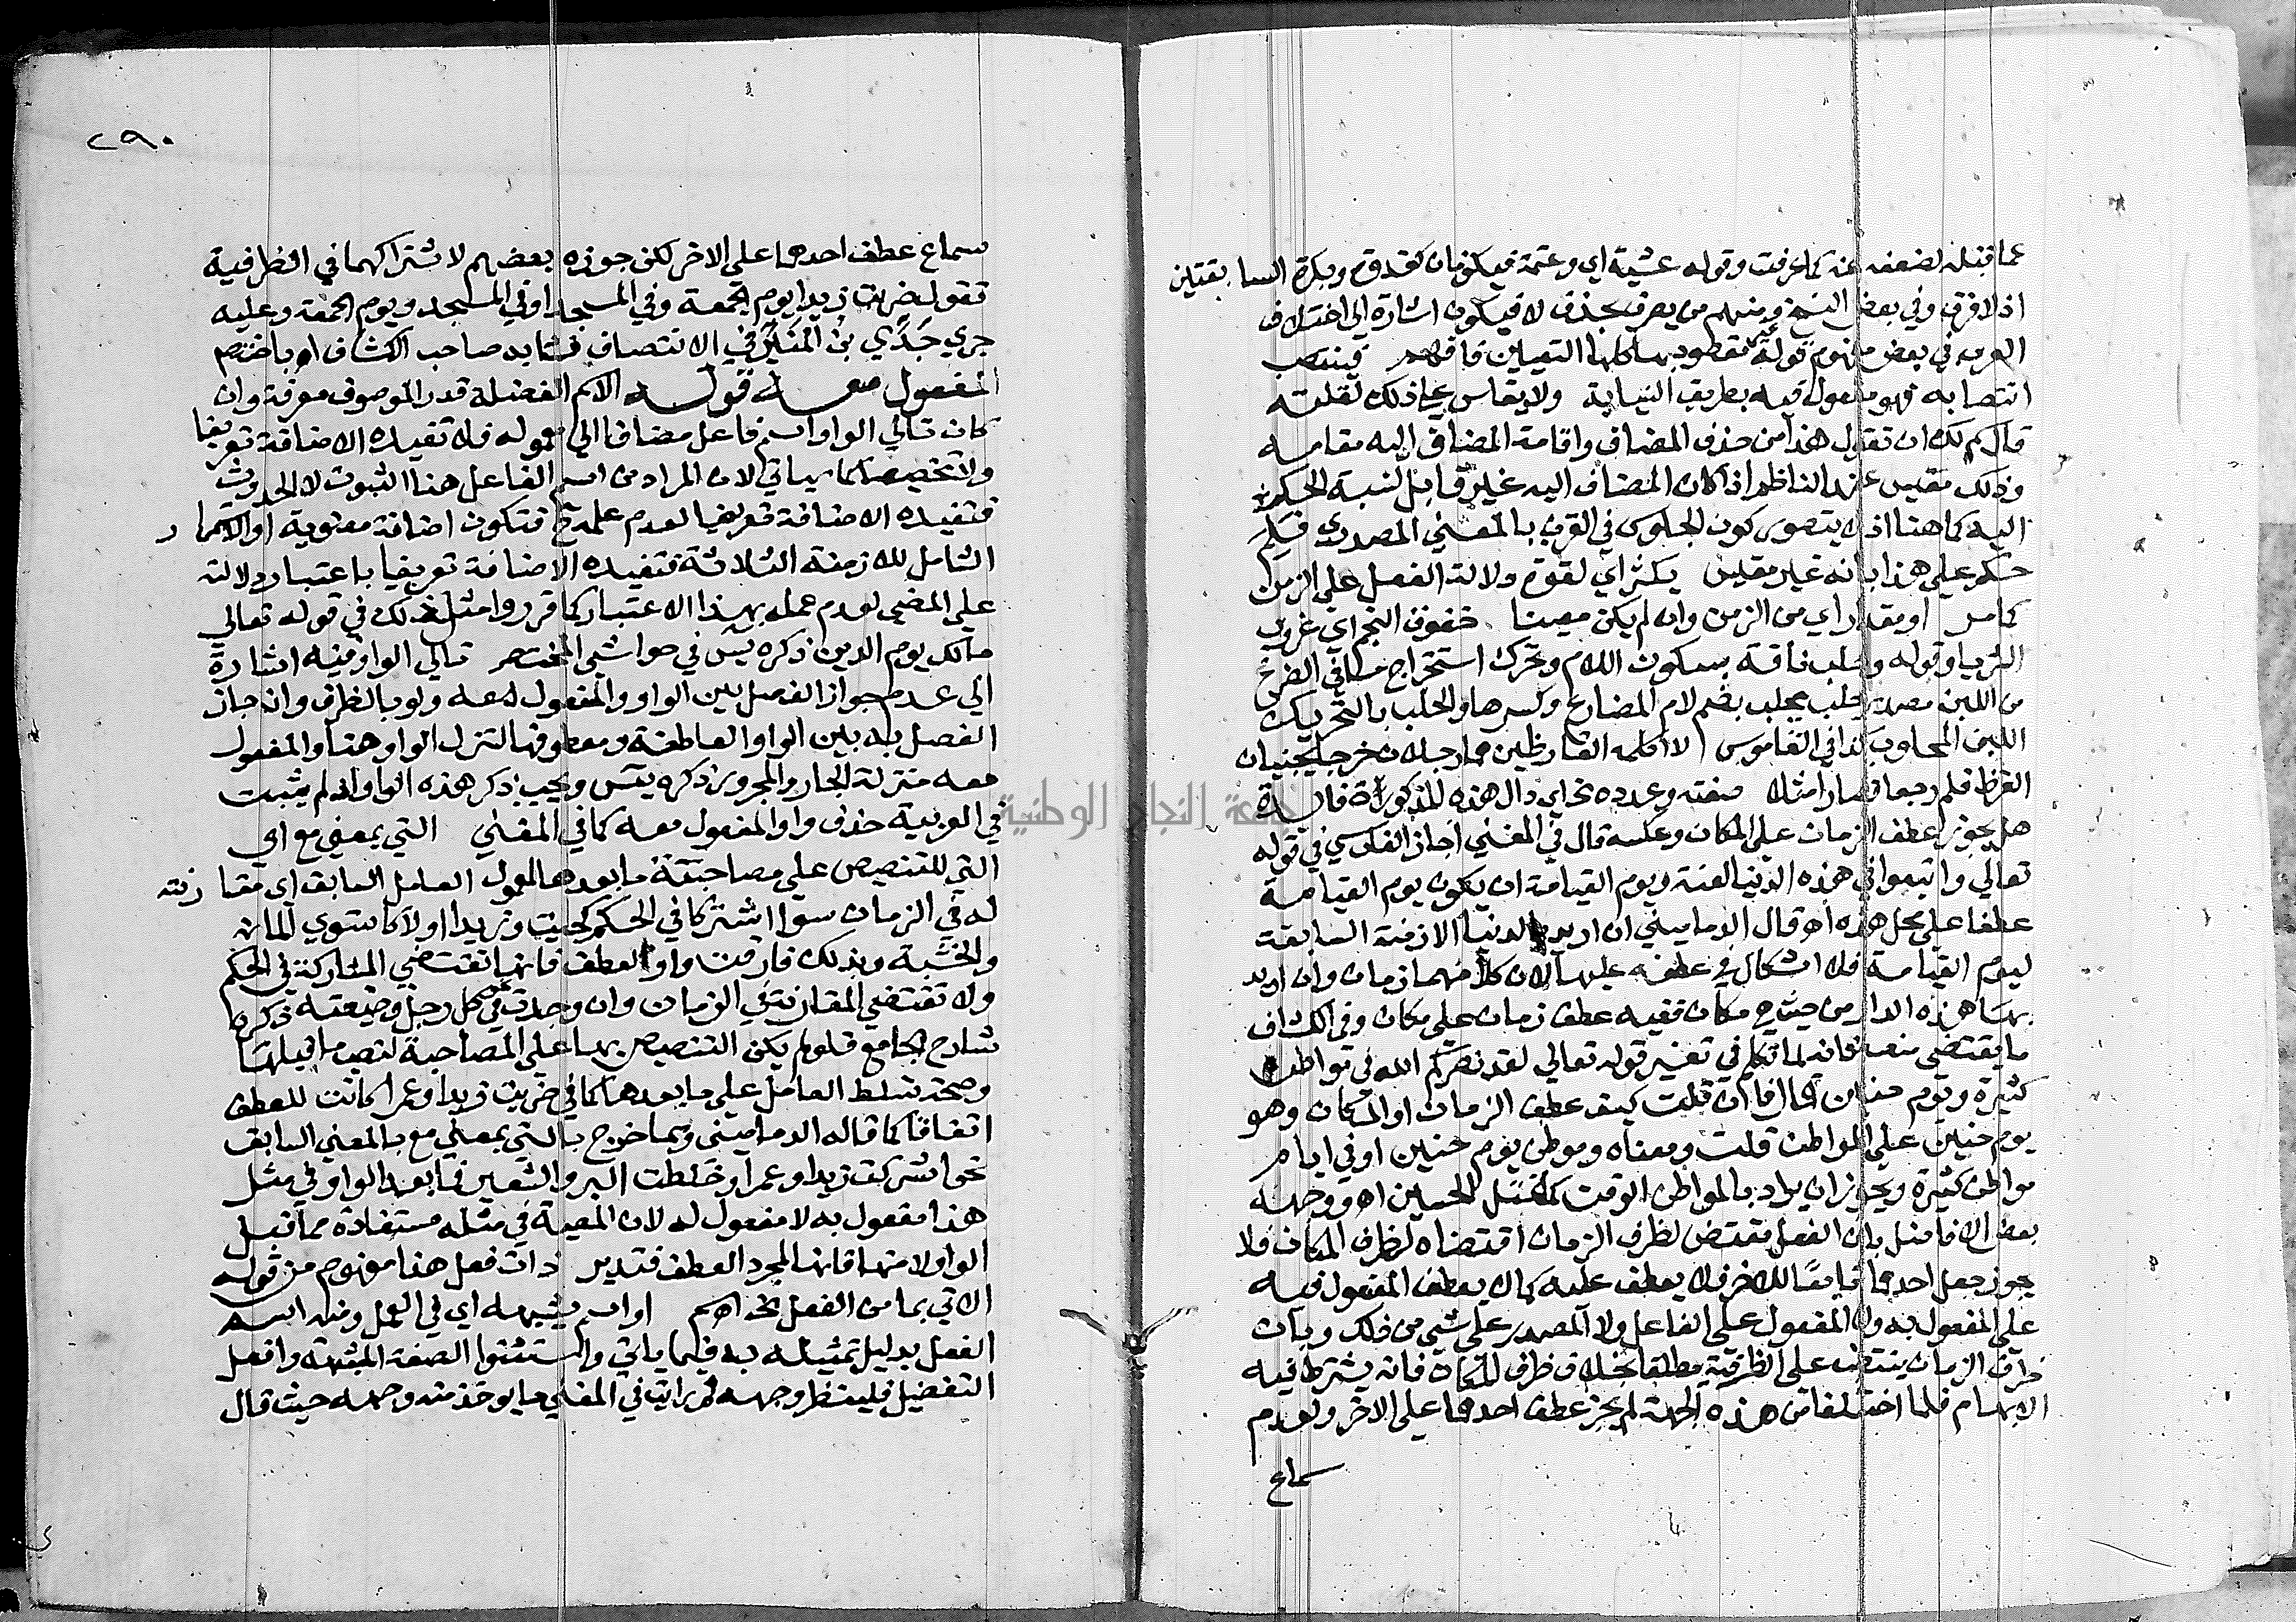 عما قبله لضعفه عنه كما عرفت وقوله عشية اي وعتمة فيكونان كغدوة وبكرة السابقتين
اذ لا فرق وفي بعض النسخ ومنهم من يصرف بحذف لا فيكون اشارة الي اختلاف
العرب في بعض مفهوم قوله مقصود بهما كلها التعيين فافهم فينتصب
انتصابه فهو مفعول فيه بطريق النيابة ولا يقاس علي ذلك لقلته
قال سم لك ان تقول هذا من حذف المضاف واقامة المضاف اليه مقامه
وذلك مقيس عند الناظم اذا كان المضاف اليه غير قابل لنسبة الحكم
اليه كما هنا اذ لا يتصور كون الجلوس في القرب بالمعني المصدري فلم
حكم علي هذا بانه غير مقيس يكثر اي لقوة دلالة الفعل علي الزمن
كما مر او مقدار اي من الزمن وان لم يكن معينا خفوق النجم اي غروب
الثريا وقوله وحلب ناقة بسكون اللام وتحرك استخراج ما في الضرع
من اللبن مصدر حلب يحلب بضم لام المضارع وكسرها والحلب بالتحريك
اللبن المحلوب كذا في القاموس لا اكلمه القارظين هما رجلان خرجا يجنيان
القرظ فلم يرجعا فصارا مثلا صفته وعدده نحو اي دال هذه المذكورة فائدة
هل يجوز عطف الزمان علي المكان وعكسه قال في المغني اجاز الفارسي في قوله
تعالي واتبعوا في هذه الدنيا لعنة ويوم القيامة ان يكون يوم القيامة
عطفا علي محل هذه اه قال الدماميني ان اريد بالدنيا الازمنة السابقة
ليوم القيامة فلا اشكال في عطفه عليها لان كلا منهما زمان وان اريد
بها هذه الدار من حيث هي مكان ففيه عطف زمان علي مكان وفي الكشاف
ما يقتضي منعه فانه لما تكلم في تفسير قوله تعالي لقد نصركم الله في مواطن
كثيرة ويوم حنين قال فان قلت كيف عطف الزمان او المكان وهو
يوم حنين علي المواطن قلت ومعناه وموطن يوم حنين او في ايام
مواطن كثيرة ويجوز ان يراد بالمواطن الوقت كمقتل الحسين اه ووجهه
بعض الافاضل بان الفعل مقتض لظرف الزمان اقتضاه لظرف المكان فلا
يجوز جعل احدهما تابعا للاخر فلا يعطف عليه كما لا يعطف المفعول فيه
علي المفعول به ولا المفعول علي الفاعل ولا المصدر علي شي من ذلك وبان
ظرف الزمان ينتصب علي الظرفية مطلقا بخلاف ظرف المكان فانه يشترط فيه
الابهام فلما اختلفا من هذه الجهة لم يجز عطف احدهما علي الاخر ولعدم
سماع
٢٩٠
سماع عطف احدهما علي الاخر لكن جوزه بعضهم لاشتراكهما في الظرفية
تقول ضربت زيدا يوم الجمعة وفي المسجد او في المسجد ويوم الجمعة وعليه
جري جدي بن المنير في الانتصاف مشايه صاحب الكشاف اه باختصم
المفعول معه قوله الاسم الفضلة قدر الموصوف معرفة وان
كان تالي الواو اسم فاعل مضافا الي معموله فلا تفيده الاضافة تعريفا
ولا تخصيصا كما ياتي لان المراد من اسم الفاعل هنا الثبوت لا الحدوث
فتفيده الاضافة تعريفا لعدم عمله ح فتكون اضافة معنوية او الاستمرار
الشامل للازمنة الثلاثة فتفيده الاضافة تعريفا باعتبار دلالته
علي المضي لعدم عمله بهذا الاعتبار كما قرروا مثل ذلك في قوله تعالي
مالك يوم الدين ذكره يس في حواشي المختصر تالي الواو فيه اشارة
الي عدم جواز الفصل بين الواو والمفعول معه ولو بالظرف وان جاز
الفصل به بين الواو العاطفة ومعطوفها لتنزل الواو هنا والمفعول
معه منزلة الجار والمجرور ذكره يس ويجب ذكر هذه الواو اذ لم يثبت
في العربية حذف واو المفعول معه كما في المغني التي بمعني مع اي
التي للتنصيص علي مصاحبة ما بعدها لمعمول العامل السابق اي مقارنته
له في الزمان سوا اشتركا في الحكم كجيت وزيدا اولا كاستوي الماء
والخشبة وبذلك فارقت واو العطف فانها تقتضي المشاركة في الحكم
ولا تقتضي المقارنة في الزمان وان وجدت في كل رجل وضيعته ذكرها
شارح الجامع فلو لم يكن التنصيص بها علي المصاحبة لنصب ما قبلها
وصحة تسلط العامل علي ما بعدها كما في ضربت زيدا وعمرا كانت للعطف
اتفاقا كما قاله الدماميني وبما خرج بالتي بمعني مع بالمعني السابق
نحو اشركت زيدا وعمرا وخلطت البر والشعير فما بعد الواو في مثل
هذا مفعول به لا مفعول له لان المعية في مثله مستفادة مما قبل
الواو لا منها فانها لمجرد العطف فتدبر ذات فعل هذا مفهوم من قوله
الاتي بما من الفعل نحو اهم او اسم يشبهه اي في العمل ومنه اسم
الفعل بدليل تمثيله به فيما ياتي واستثنوا الصفة المشبهة وافعل
التفضيل فلينظر وجهه ثم رايت في المغني ما يوخذ منه وجهه حيث قال
جامعة النجاح الوطنية